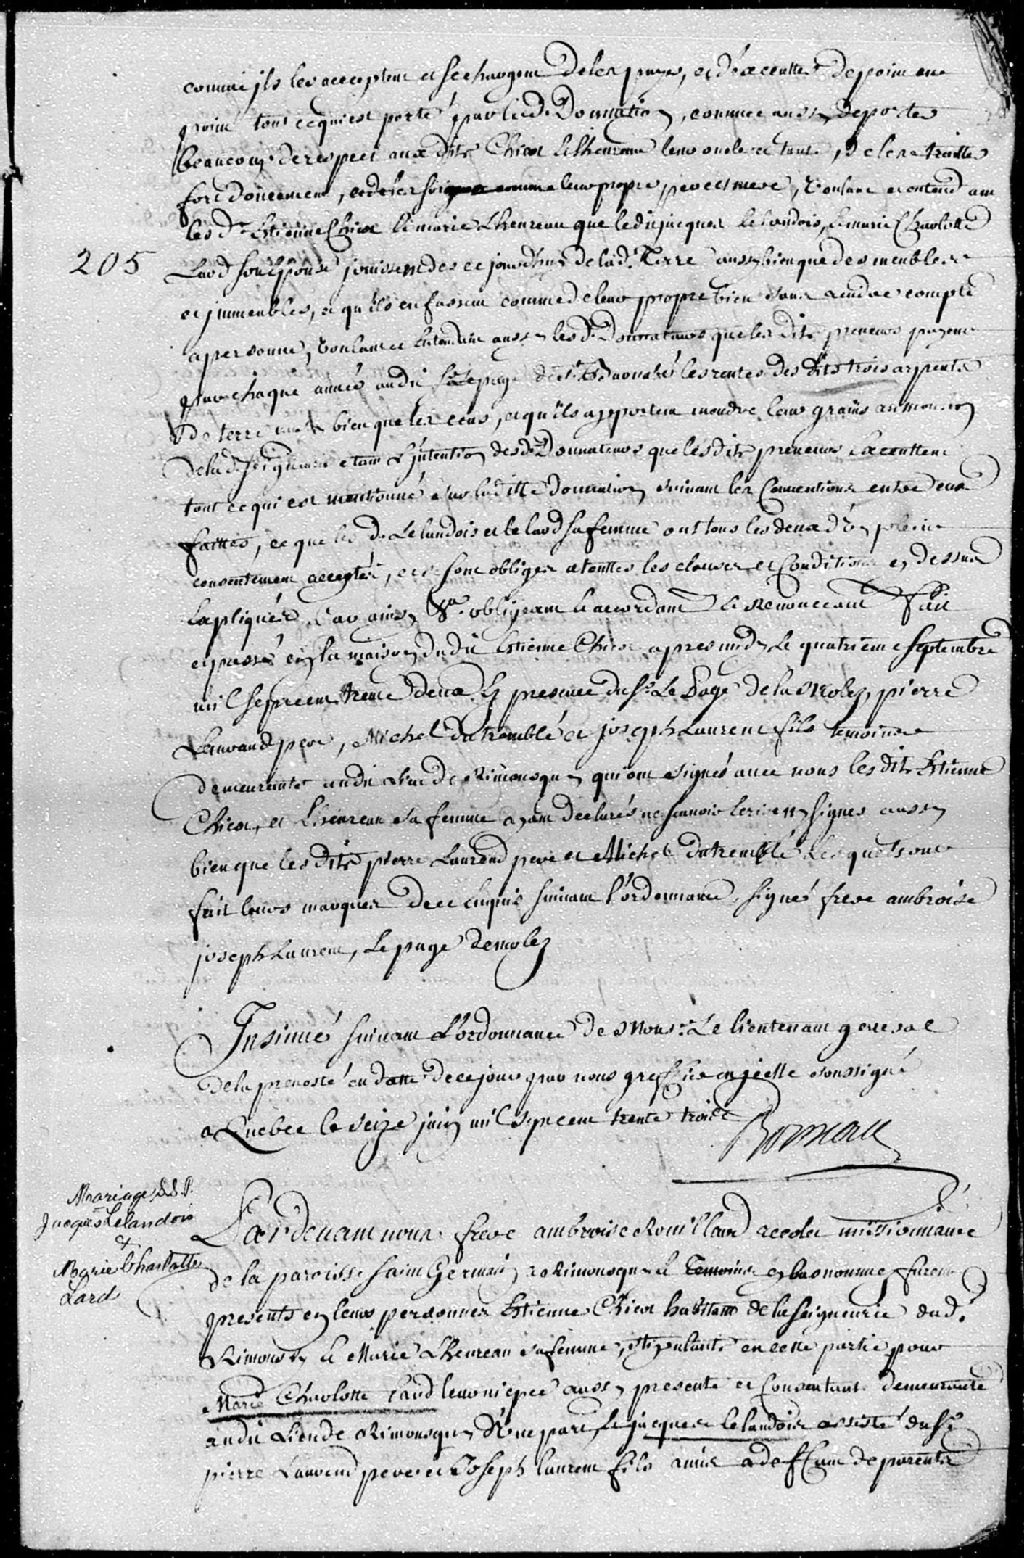 comme ils les acceptent et se chargent de les payer, et d'acquitter de point en
point tout ce qui est porté par la d. Donnation, comme aussy de porter
beaucoup de respect aux dits Chicot et Lheureau leur oncle et tante, et de les traitter
fort doucement, et de les soigner comme leur propre pere et mere, voulant et entendant
les d. Estienne Chicot et marie Lheureau que le dit jacques le landois, et marie Charlotte
205
Lard son Epouse jouissent des ce jourd'huy de la d. Terre aussy bien que des meubles
et jmmeubles, et qu'ils en fassent comme de leur propre bien sans rendre compte
a personne, voulant et entendant aussy les d. Donnateurs que les dits preneurs payent
par chaque année au dit Sr Lepage de St Barnabé les rentes des dits trois arpents
de terre aussy bien que les cens, et qu'ils apportent moudre leur grains au moulin
de la d. seigneurie etant L'intention des d. Donnateurs que les dits preneurs acquittent
tout ce qui est mentionné sur la ditte donnation suivant les Conventions entre eux
faittes, ce que les d. Lelandois et le Lard sa femme ont tous les deux de plein
consentement accepté, et se sont obligés a touttes les clauses et Conditions cy dessus
Expliquées, Car ainsy &a obligeant et accordant et Renonceant fait
et passé en la maison du dit Estienne Chicot apres midy Le quatrieme septembre
mil sept cent trente deux En presence du Sr Le Page de la Molez, pierre
Laurand pere, Michel dutremblé et joseph Laurent fils temoins
demeurants au dit Lieu de Rimousquy qui ont signés avec nous les dits Estienne
Chicot, et Lheureau sa femme ayant declarés ne scavoir Ecrire ny signer aussy
bien que les dits pierre Laurend pere et Michel dutremblé Lesquels ont
fait leurs marques de ce Enquis suivant l'ordonnance, signés frere ambroise
joseph Laurent, Le page de molez
Insinué suivant L'ordonnance de Mons.r Le lieutenant general
de la prevosté en datte de ce jour par nous greffier en jcelle soussigné
a Quebec le seize juin mil sept cent trente trois
Boisseau
Mariage
Jacques Lelandois
&
Marie Charlotte
Lard
Pardevant nous frere ambroise Rouillard recolet missionnaire
de la paroisse saint Germain a Rimousquy et temoins cy bas nommé furent
presents en leurs personnes Estienne Chicot habitant de la seigneurie du d.
Rimousky et Marie Lheureau sa femme, stipulants en cette partie pour
Marie Charlotte Lard leur niepce aussy presente et Consentante demeurante
au dit Lieu de Rimousquy D'une part, Et jacques lelandois assisté du Sr
pierre Laurend pere et Joseph laurent fils amis a deffaut de parents